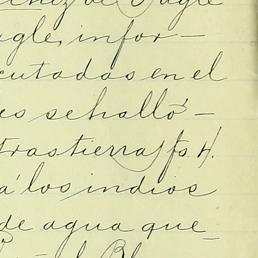 chez de Sagle
agle, infor-
cutadas en el
es se halló-
trastierra, fs. 4.
a los indios
de agua que-